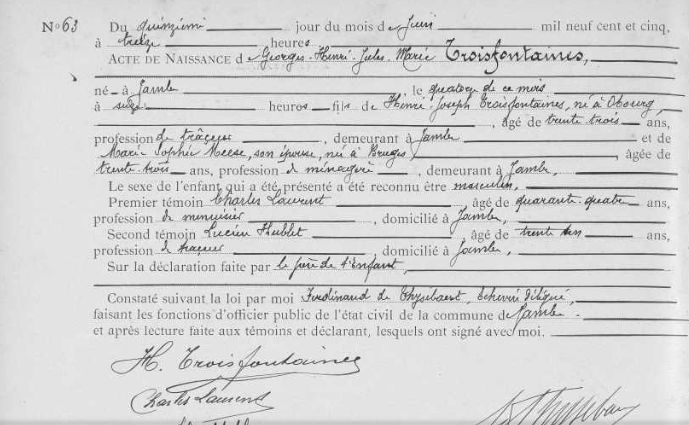 No 63 Du quinzième jour du mois de Juin mil neuf cent et cinq,
à treize heures
ACTE DE NAISSANCE de Georges Henri Jules Marie Troisfontaines,
né à Jambe, le quatorze de ce mois
à heures fils de Henri Joseph Troisfontaines, né à Obourg,
âgé de trente trois ans,
profession de traceur, demeurant à Jambe et de
Marie Sophie Meese, son épouse, née à Bruges, âgée de
trente trois ans, profession de ménagère, demeurant à Jambe,
Le sexe de l'enfant qui a été présenté a été reconnu être masculin,
Premier témoin Charles Laurent, âgé de quarante quatre ans,
profession de menuisier, domicilié à Jambe,
Second témoin Lucien Hublet, âgé de trente ans,
profession de traceur, domicilié à Jambe,
Sur la déclaration faite par le père de l'Enfant,
Constaté suivant la loi par moi Ferdinand de Thysebaert, Echevin délégué,
faisant les fonctions d'officier public de l'état civil de la commune de Jambe
et après lecture faite aux témoins et déclarant, lesquels ont signé avec moi.
H. Troisfontaines
Charles Laurent